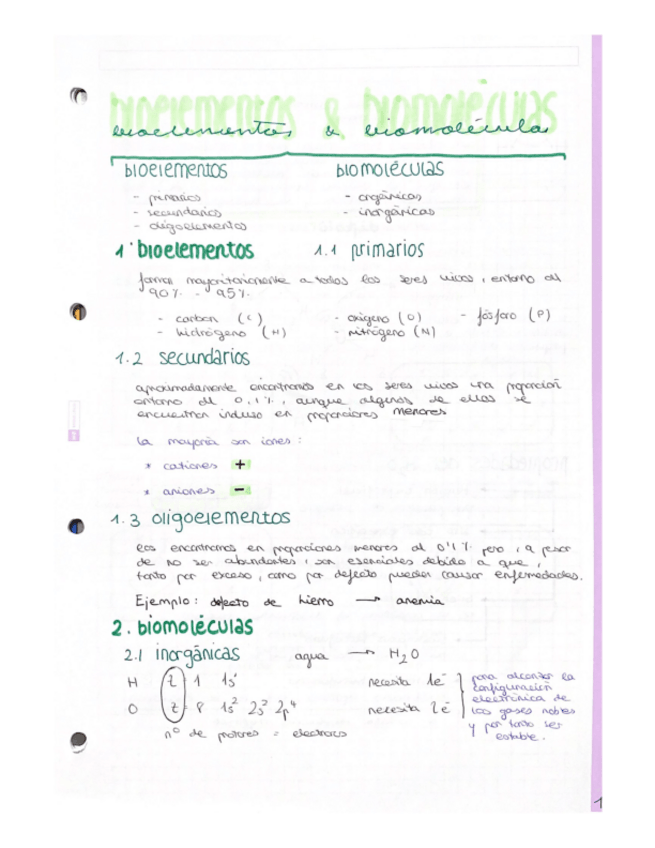 bioelementos & biomoléculas
bioelementos & biomoléculas
bioelementos
biomoléculas
- primarios
- secundarios
- oligoelementos
- orgánicas
- inorgánicas
1. bioelementos
1.1 primarios
forman mayoritariamente a todos los seres vivos, entorno al
90% - 95%
- carbon (C)
- hidrógeno (H)
- oxígeno (O)
- nitrógeno (N)
- fósforo (P)
1.2 secundarios
aproximadamente encontramos en los seres vivos una proporción
entorno al 0,1%, aunque algunos de ellos se
encuentran incluso en proporciones menores
la mayoría son iones:
* cationes +
* aniones -
1.3 oligoelementos
los encontramos en proporciones menores al 0'1% pero, a pesar
de no ser abundantes, son esenciales debido a que,
tanto por exceso, como por defecto pueden causar enfermedades.
Ejemplo: defecto de hierro → anemia
2. biomoléculas
2.1 inorgánicas
agua → H2O
H Z 1 1s¹ necesita 1e⁻
O Z = 8 1s² 2s² 2p⁴ necesita 2e⁻
nº de protones = electrones
para alcanzar la
configuración
electrónica de
los gases nobles
y por tanto ser
estable.
1